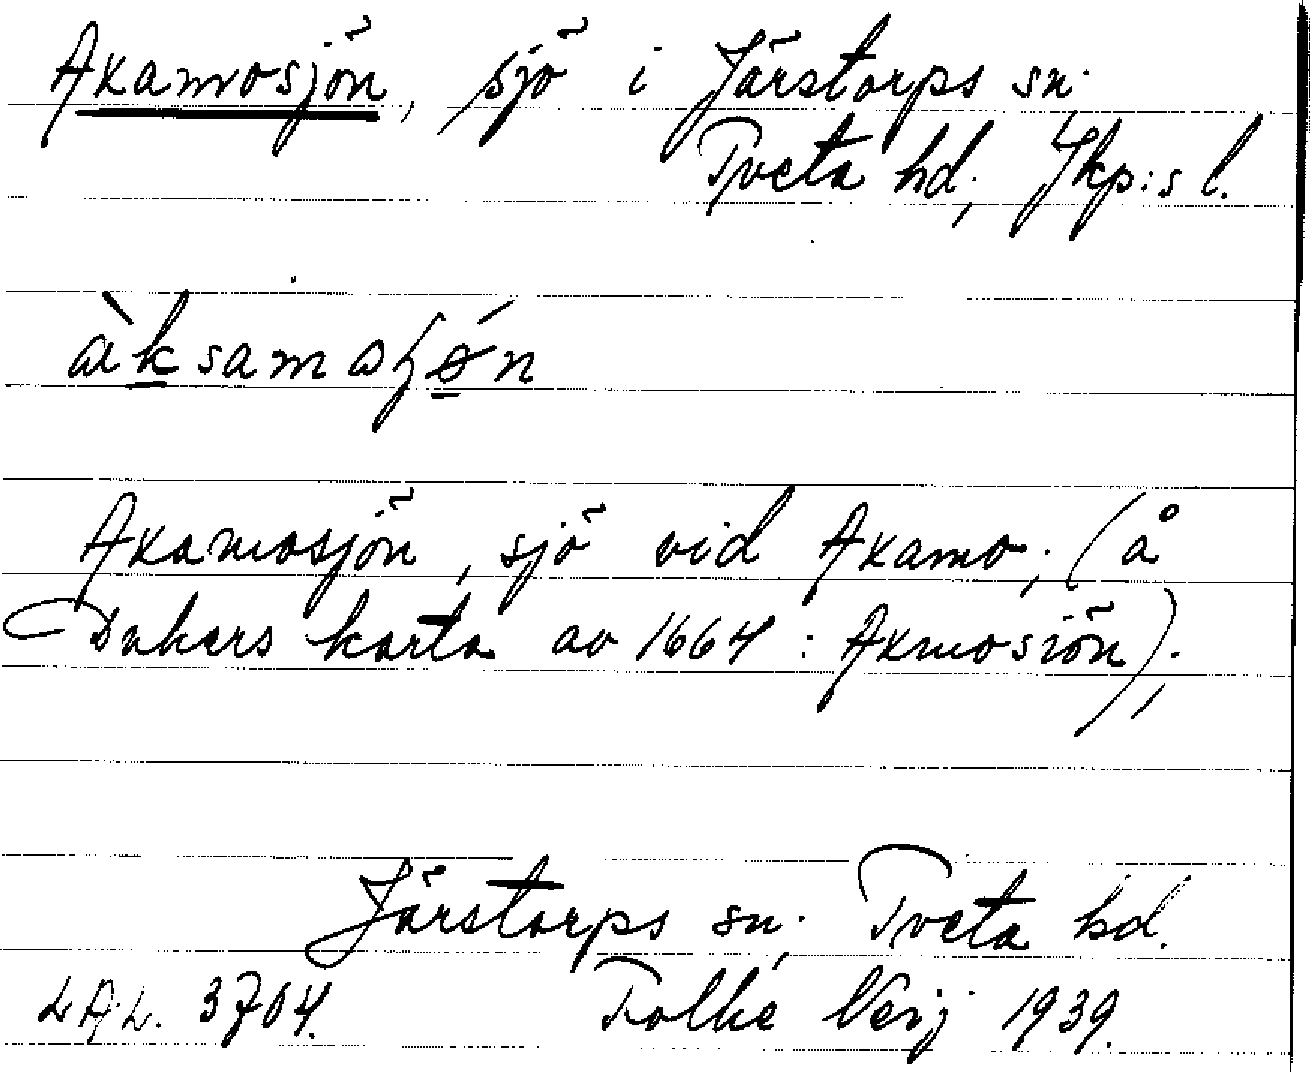 Axamosjön, sjö i Järstorps sn.
Tveta hd, Jkp:s l.
Axamosjön, sjö vid Axamo, (å
Dukers karta av 1664 : Axmosiön).
Järstorps sn. Tveta hd.
LAL. 3704. Folke
1939.